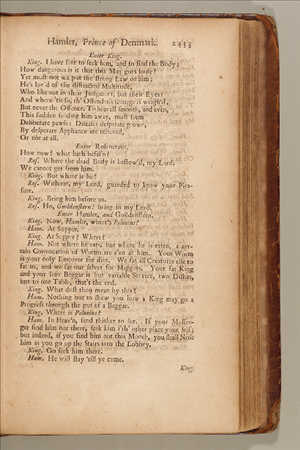 Hamlet, Prince of Denmark. 2453
Enter King.
King. I have sent to seek him, and to find the Body;
How dangerous is it that this Man goes loose!
Yet must not we put the strong Law on him;
He's lov'd of the distracted Multitude,
Who like not in their Judgment, but their Eyes:
And where 'tis so, th' Offender's Scourge is weigh'd,
But never the Offence. To bear all smooth, and even,
This sudden sending him away, must seem
Deliberate pause: Diseases desperate grown,
By desperate Appliance are relieved,
Or not at all.
Enter Rosencrantz.
How now? what hath befall'n?
Ros. Where the dead Body is bestow'd, my Lord,
We cannot get from him.
King. But where is he?
Ros. Without, my Lord, guarded to know your Plea-
sure.
King. Bring him before us.
Ros. Ho, Guildenstern! bring in my Lord.
Enter Hamlet, and Guildenstern.
King. Now, Hamlet, where's Polonius?
Ham. At Supper.
King. At Supper? Where?
Ham. Not where he eats, but where he is eaten, a cer-
tain Convocation of Worms are e'en at him. Your Worm
is your only Emperor for diet. We fat all Creatures else to
fat us, and we fat our selves for Maggots. Your fat King
and your lean Beggar is but variable Service, two Dishes,
but to one Table, that's the end.
King. What dost thou mean by this?
Ham. Nothing but to shew you how a King may go a
Progress through the gut of a Beggar.
King. Where is Polonius?
Ham. In Heav'n, send thither to see. If your Messen-
ger find him not there, seek him i'th' other place your self;
but indeed, if you find him not this Month, you shall Nose
him as you go up the Stairs into the Lobby.
King. Go seek him there.
Ham. He will stay 'till ye come.
King.